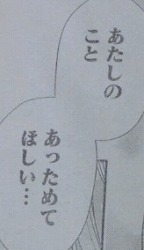 あたしの
こと
あっためて
ほしい…